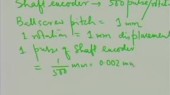 Shaft encoder → 500 pulse/
Ballscrew pitch = 1 mm
1 rotation = 1 mm displacement
1 pulse of shaft encoder
= 1/500 mm = 0.002 mm